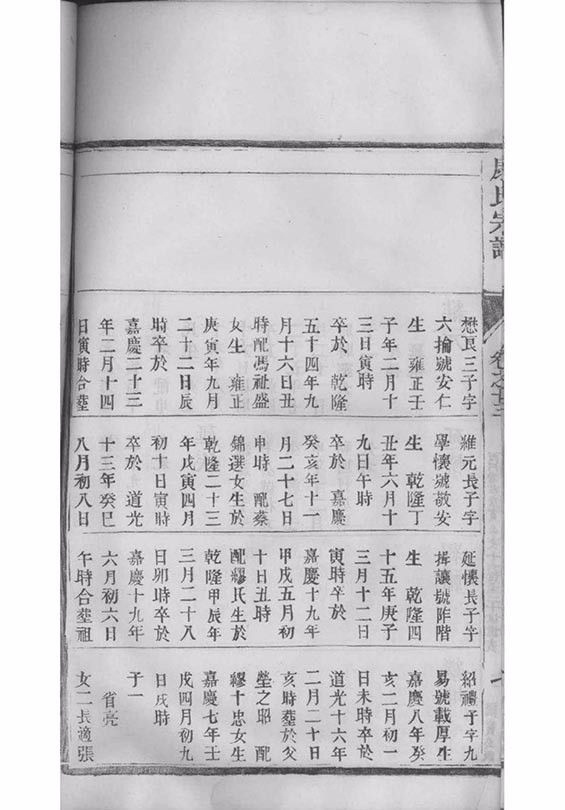 氏宗譜
懋良三子字
六掄號安仁
生 雍正壬
子年二月十
三日寅時
卒於 乾隆
五十四年九
月十六日丑
時配馮祉盛
女生 雍正
庚寅年九月
二十二日辰
時卒於
嘉慶二十三
年二月十四
日寅時合塟
維元長子字
學懷號敬安
生 乾隆丁
丑年六月十
九日午時
卒於 嘉慶
癸亥年十一
月二十七日
申時 配蔡
錦選女生於
乾隆二十三
年戊寅四月
初十日寅時
卒於 道光
十三年癸巳
八月初八日
延懷長子字
揖讓號阼階
生 乾隆四
十五年庚子
三月十二日
寅時卒於
嘉慶十九年
甲戌五月初
十日丑時
配繆氏生於
乾隆甲辰年
三月二十八
日卯時卒於
嘉慶十九年
六月初六日
午時合塟祖
紹禮子字九
易號載厚生
嘉慶八年癸
亥二月初一
日未時卒於
道光十六年
二月二十日
亥時塟於父
塋之昭 配
繆十忠女生
嘉慶七年壬
戌四月初九
日戌時
子一
省亮
女二長適張